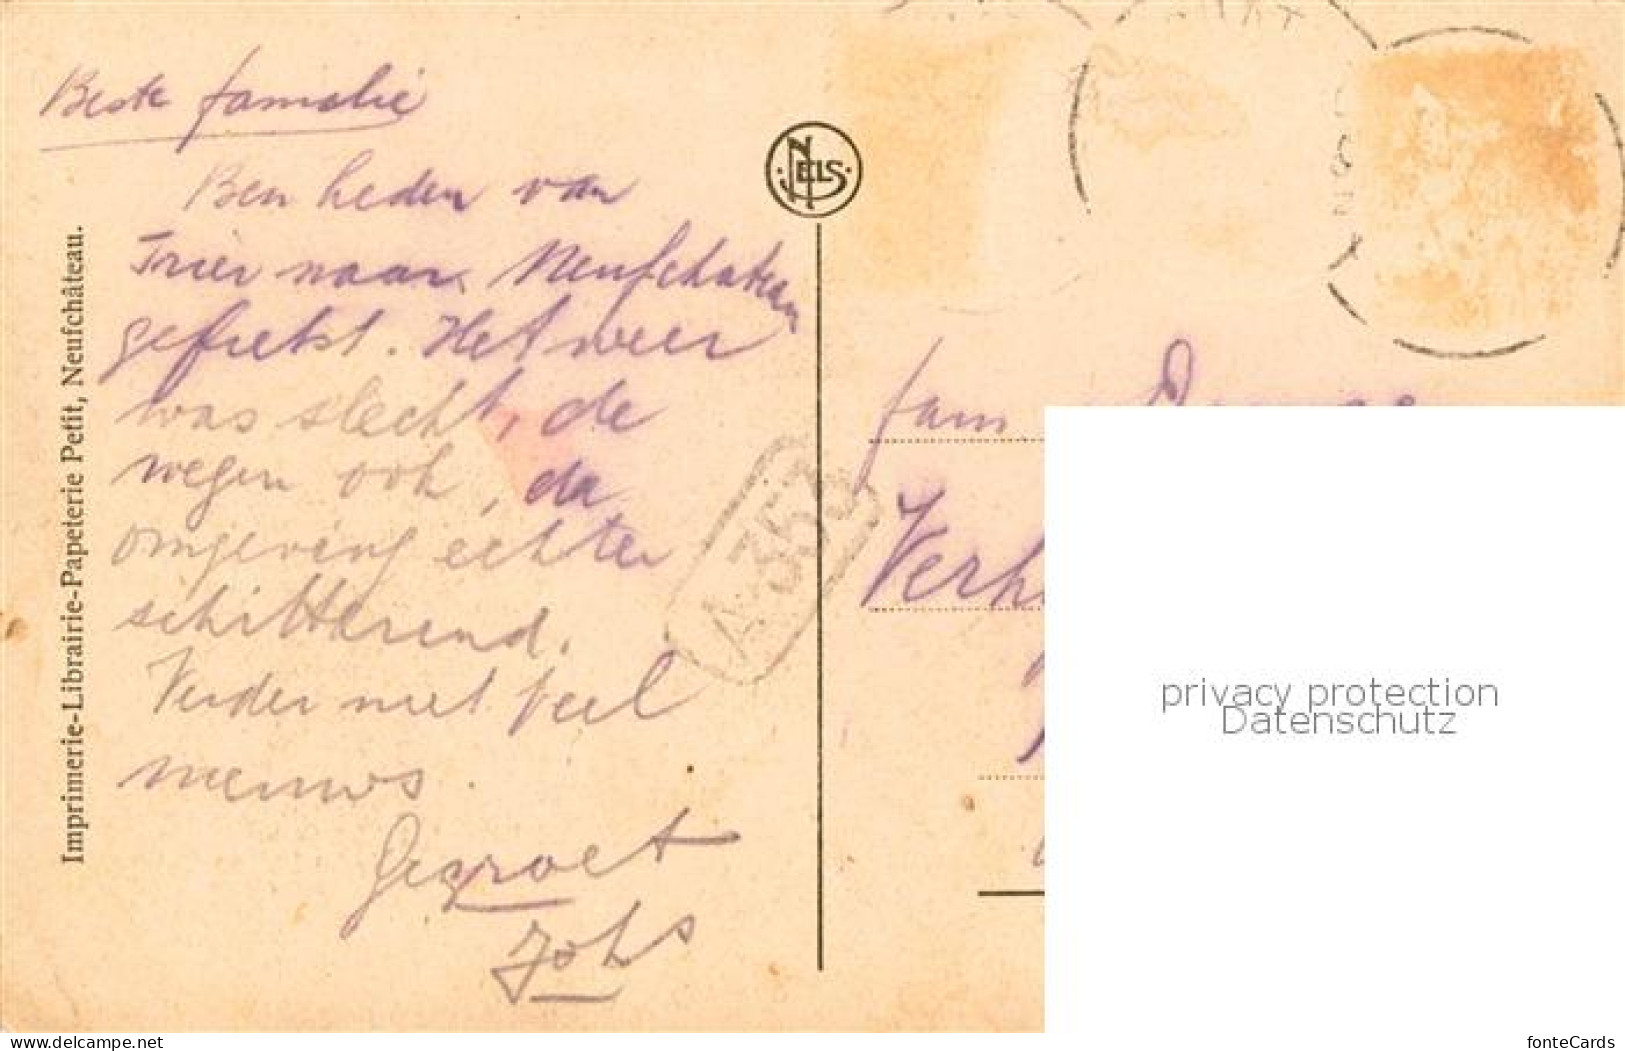 Beste familie
Ben heden van
Trier naar Neufchateau
gefietst. Het weer
was slecht, de
wegen ook, de
omgeving echter
schitterend.
Verder niet veel
nieuws.
Gegroet
Johs
Imprimerie-Librairie-Papeterie Petit, Neufchâteau.
NELS
A 353
fam.
privacy protection
Datenschutz
www.delcampe.net
fonteCards